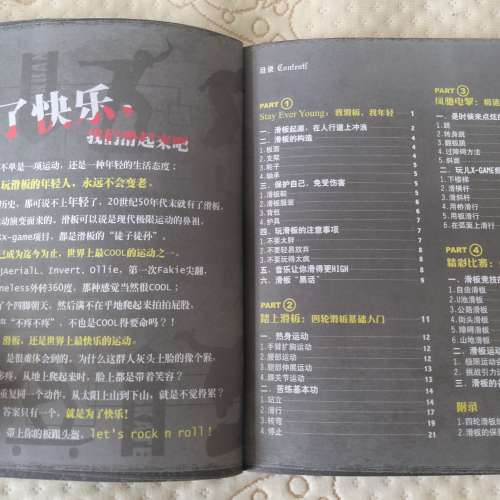 了快乐，
我们滑起来吧
不单是一项运动，还是一种年轻的生活态度；
玩滑板的年轻人，永远不会变老。
历史，那可说不上年轻了，20世纪50年代末就有了滑板，
动演变而来的，滑板可以说是现代极限运动的鼻祖，
x-game项目，都是滑板的“徒子徒孙”。
已成为迄今为止，世界上最COOL的运动之一。
AerialL、Invert、Ollie，第一次Fakie尖翻，
neless外转360度，那种感觉当然很COOL；
了个四脚朝天，然后满不在乎地爬起来拍拍屁股，
声“不疼不疼”，不也是COOL得要命吗？！
滑板，还是世界上最快乐的运动。
是很难体会到的，为什么这群人灰头土脸的像个猴，
多疼，从地上爬起来时，脸上都是带着笑容？
重复同一个动作，从太阳上山到下山，就是不觉得累？
答案只有一个，就是为了快乐！
带上你的板跟头盔，let's rock n roll！
目录 Content
PART 1
Stay Ever Young：我滑板，我年轻 1
一、滑板起源，在人行道上冲浪 2
二、滑板的构造 2
1、板面 2
2、支架
3、轮子
4、轴承
三、保护自己，免受伤害
1、滑板鞋
2、滑板服装
3、背包
4、护具
四、玩滑板的注意事项 7
1、不要太胖 7
2、不要轻易放弃
3、不要玩得太疯
五、音乐让你滑得更HIGH
六、滑板“黑话”
PART 2
踏上滑板：四轮滑板基础入门 11
一、热身运动 12
1、手臂扩胸运动
2、腰部运动
3、腿部伸展运动
4、膝关节运动
二、苦练基本功
1、站立
2、滑行
3、转弯
4、停止 21
PART 3
风驰电掣：极速
一、是时候来点炫的
1、跳
2、转身跳
3、翻板跳
4、过障碍方法
5、斜面
二、玩儿X-GAME
1、下楼梯
2、滑横杆
3、滑斜杆
4、用桥滑行
5、用板滑行
6、在弧面上滑行
PART 4
精彩比赛：
一、滑板竞技
1、自由滑板
2、U池滑板
3、公路滑板
4、街头滑板
5、障碍滑板
6、山地滑板
二、滑板运动
1、极限运动
2、挑战引力
三、滑板的各
附录
1、四轮滑板
2、滑板的保